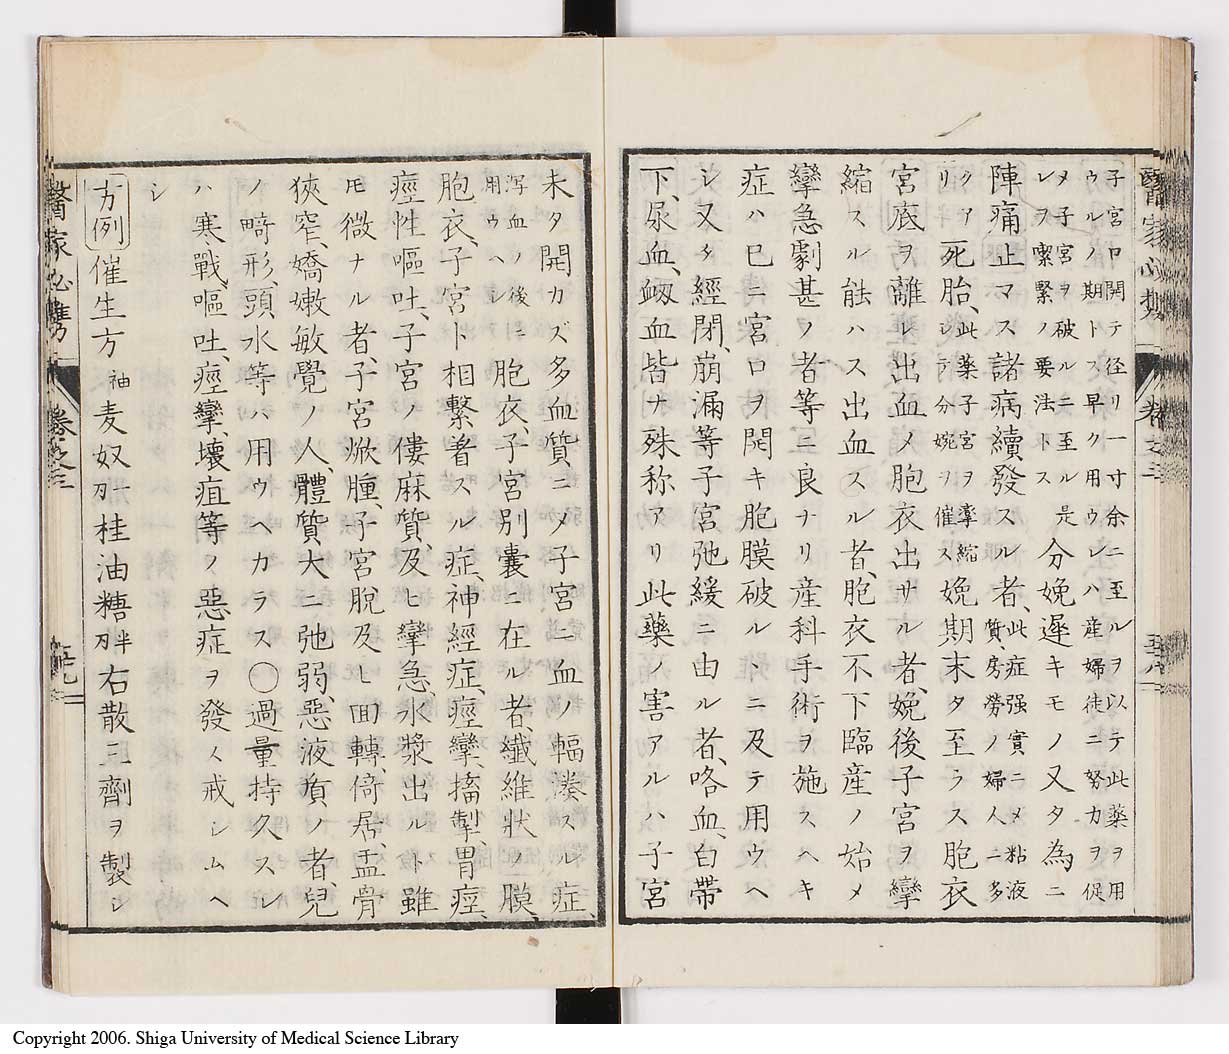 子宮口開テ径リ一寸余ニ至ルヲ以テ此薬ヲ用
ウルノ期トス早ク用ウレハ産婦徒ニ努力ヲ促
メ子宮ヲ破ルニ至ル是
レヲ喫緊ノ要法トス
分娩遅キモノ又タ為ニ
陣痛止マス諸病續發スル者、
此症强實ニメ粘液
質、房勞ノ婦人ニ多
クア
リ
死胎、
此薬子宮ヲ攣縮
シテ分娩ヲ催ス
娩期末タ至ラス胞衣
宮底ヲ離レ出血メ胞衣出サル者、娩後子宮ヲ攣
縮スル能ハス出血スル者、胞衣不下臨産ノ始メ
攣急劇甚ノ者等ニ良ナリ産科手術ヲ施スヘキ
症ハ巳ニ宮口ヲ開キ胞膜破ルトニ及テ用ウヘ
シ又タ經閉、崩漏等子宮弛緩ニ由ル者、咯血、白帶
下、尿血、衂血皆ナ殊称アリ此藥ノ害アルハ子宮
醫家必携
卷之三
五十八
未タ開カズ多血質ニメ子宮ニ血ノ輻湊スル症、
泻血ノ後ニ
用ウヘシ
胞衣、子宮別囊ニ在ル者、纖維狀ノ膜、
胞衣、子宮ト相繫着スル症、神經症、痙攣、搐掣、胃痙、
痙性嘔吐、子宮ノ僂麻質、及ヒ攣急、水漿出ルト雖
𪜈微ナル者、子宮焮腫、子宮脫及ヒ回轉、倚居、盂骨
狹窄、嬌嫩敏覺ノ人、體質大ニ弛弱惡液質ノ者、兒
ノ畸形、頭水等ハ用ウヘカラス〇過量持久スレ
ハ寒戰、嘔吐、痙攣、壞疽等ノ惡症ヲ發ス戒シムヘ
シ
方例催生方
袖
麦奴
桂油糖
右散三劑ヲ製シ
醫家必携
卷之三
五十九
Copyright 2006. Shiga University of Medical Science Library